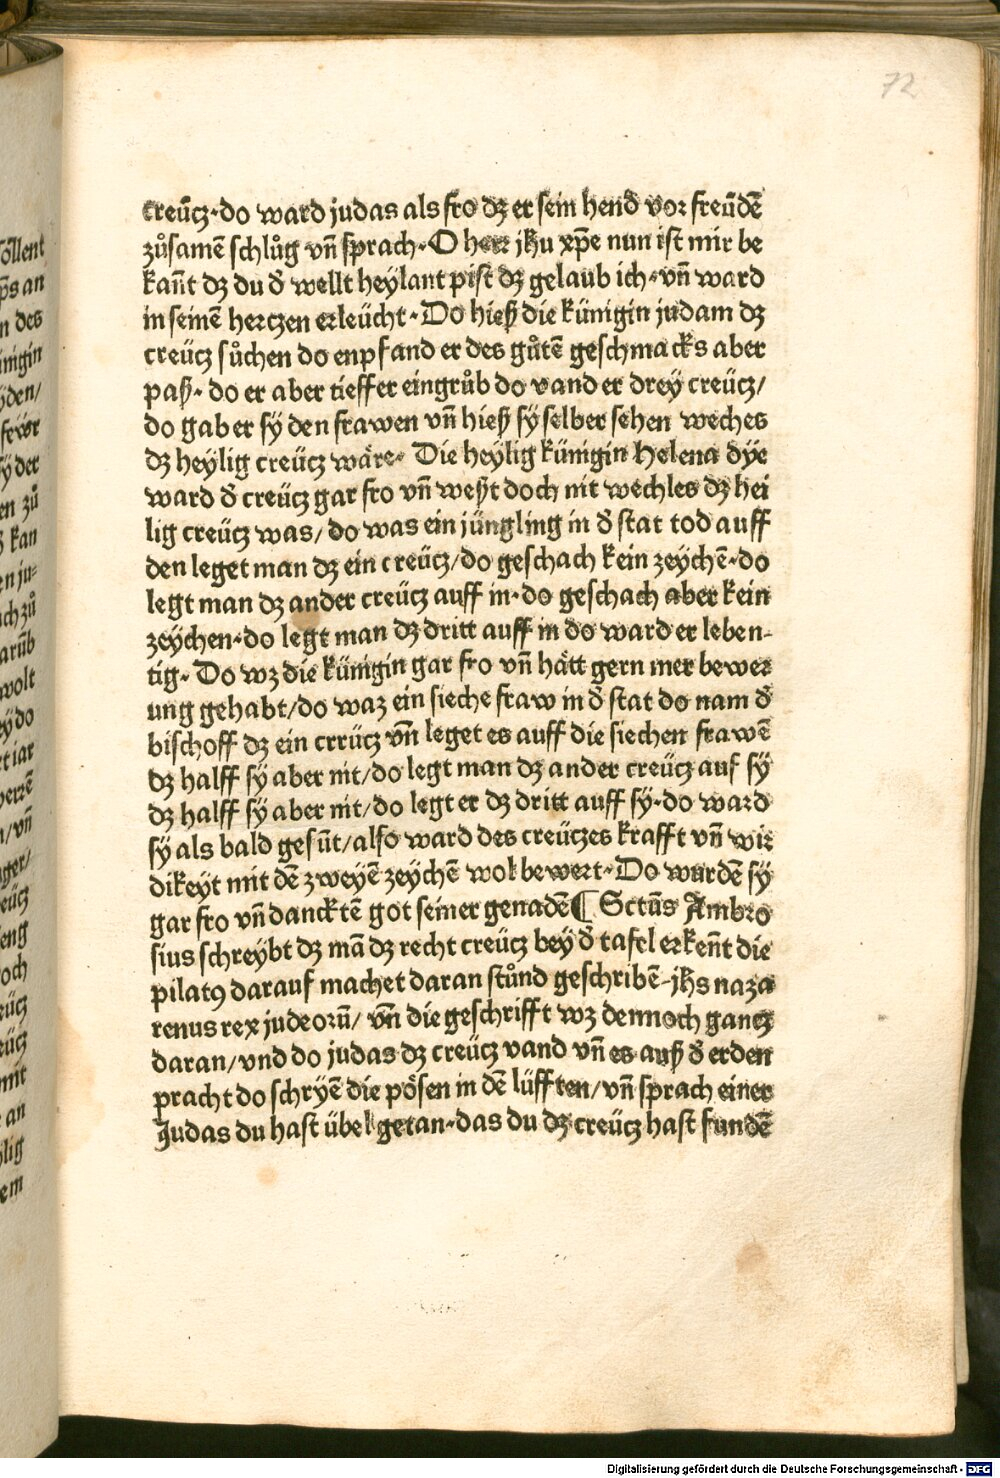 72
creücz·do ward judas als fro dz er sein hend vor freüdē
zůsamē schlůg vn̄ sprach·O herr jhu xp̄e nun ist mir be
kan̄t dz du đ wellt heylant pist dz gelaub ich·vn̄ ward
in seinē hertczen erleücht·Do hieß die künigin judam dz
creücz sůchen do enpfand er des gůtē geschmacks aber
paß· do er aber tieffer eingrůb do vand er drey creücz/
do gab er sÿ den frawen vn̄ hieß sÿ selber sehen weches
dz heylig creücz wäre· Die heylig künigin Helena dÿe
ward đ creücz gar fro vn̄ weßt doch nit wechles dz hei
lig creücz was/ do was ein jüngling in đ stat tod auff
den leget man dz ein creücz/do geschach kein zeychē·do
legt man dz ander creücz auff in·do geschach aber kein
zeÿchen·do legt man dz dritt auff in do ward er leben-
tig· Do wz die künigin gar fro vn̄ hätt gern mer bewer
ung gehabt/do waz ein sieche fraw in đ stat do nam đ
bischoff dz ein crrücz vn̄ leget es auff die siechen frawē
dz halff sÿ aber nit/do legt man dz ander creücz auf sÿ
dz halff sÿ aber nit/do legt er dz dritt auff sÿ·do ward
sÿ als bald gesūt/also ward des creüczes krafft vn̄ wir
dikeyt mit dē zweyē zeychē wol bewert·Do wurdē sÿ
gar fro vn̄ dancktē got seiner genadē¶ Sctūs Ambro
sius schreybt dz mā dz recht creücz bey đ tafel erken̄t die
pilatꝰ darauf machet daran stůnd geschribē-jhs naza
renus rex judeorū/ vn̄ die geschrifft wz dennoch gancz
daran/vnd do judas dz creücz vand vn̄ es auß đ erden
pracht do schryē die pösen in dē lüfften/vn̄ sprach einer
Judas du hast übel getan·das du dz creücz hast fundē
söllent
an
n des
ÿden/
ÿ der
en zů
kan
n ju-
ach zů
arūb
wolt
ey do
t iar
herrē
n/vn̄
ger/
eücz
eng
och
rücz
eücz
mit
an
lig
em
Digitalisierung gefördert durch die Deutsche Forschungsgemeinschaft - DFG